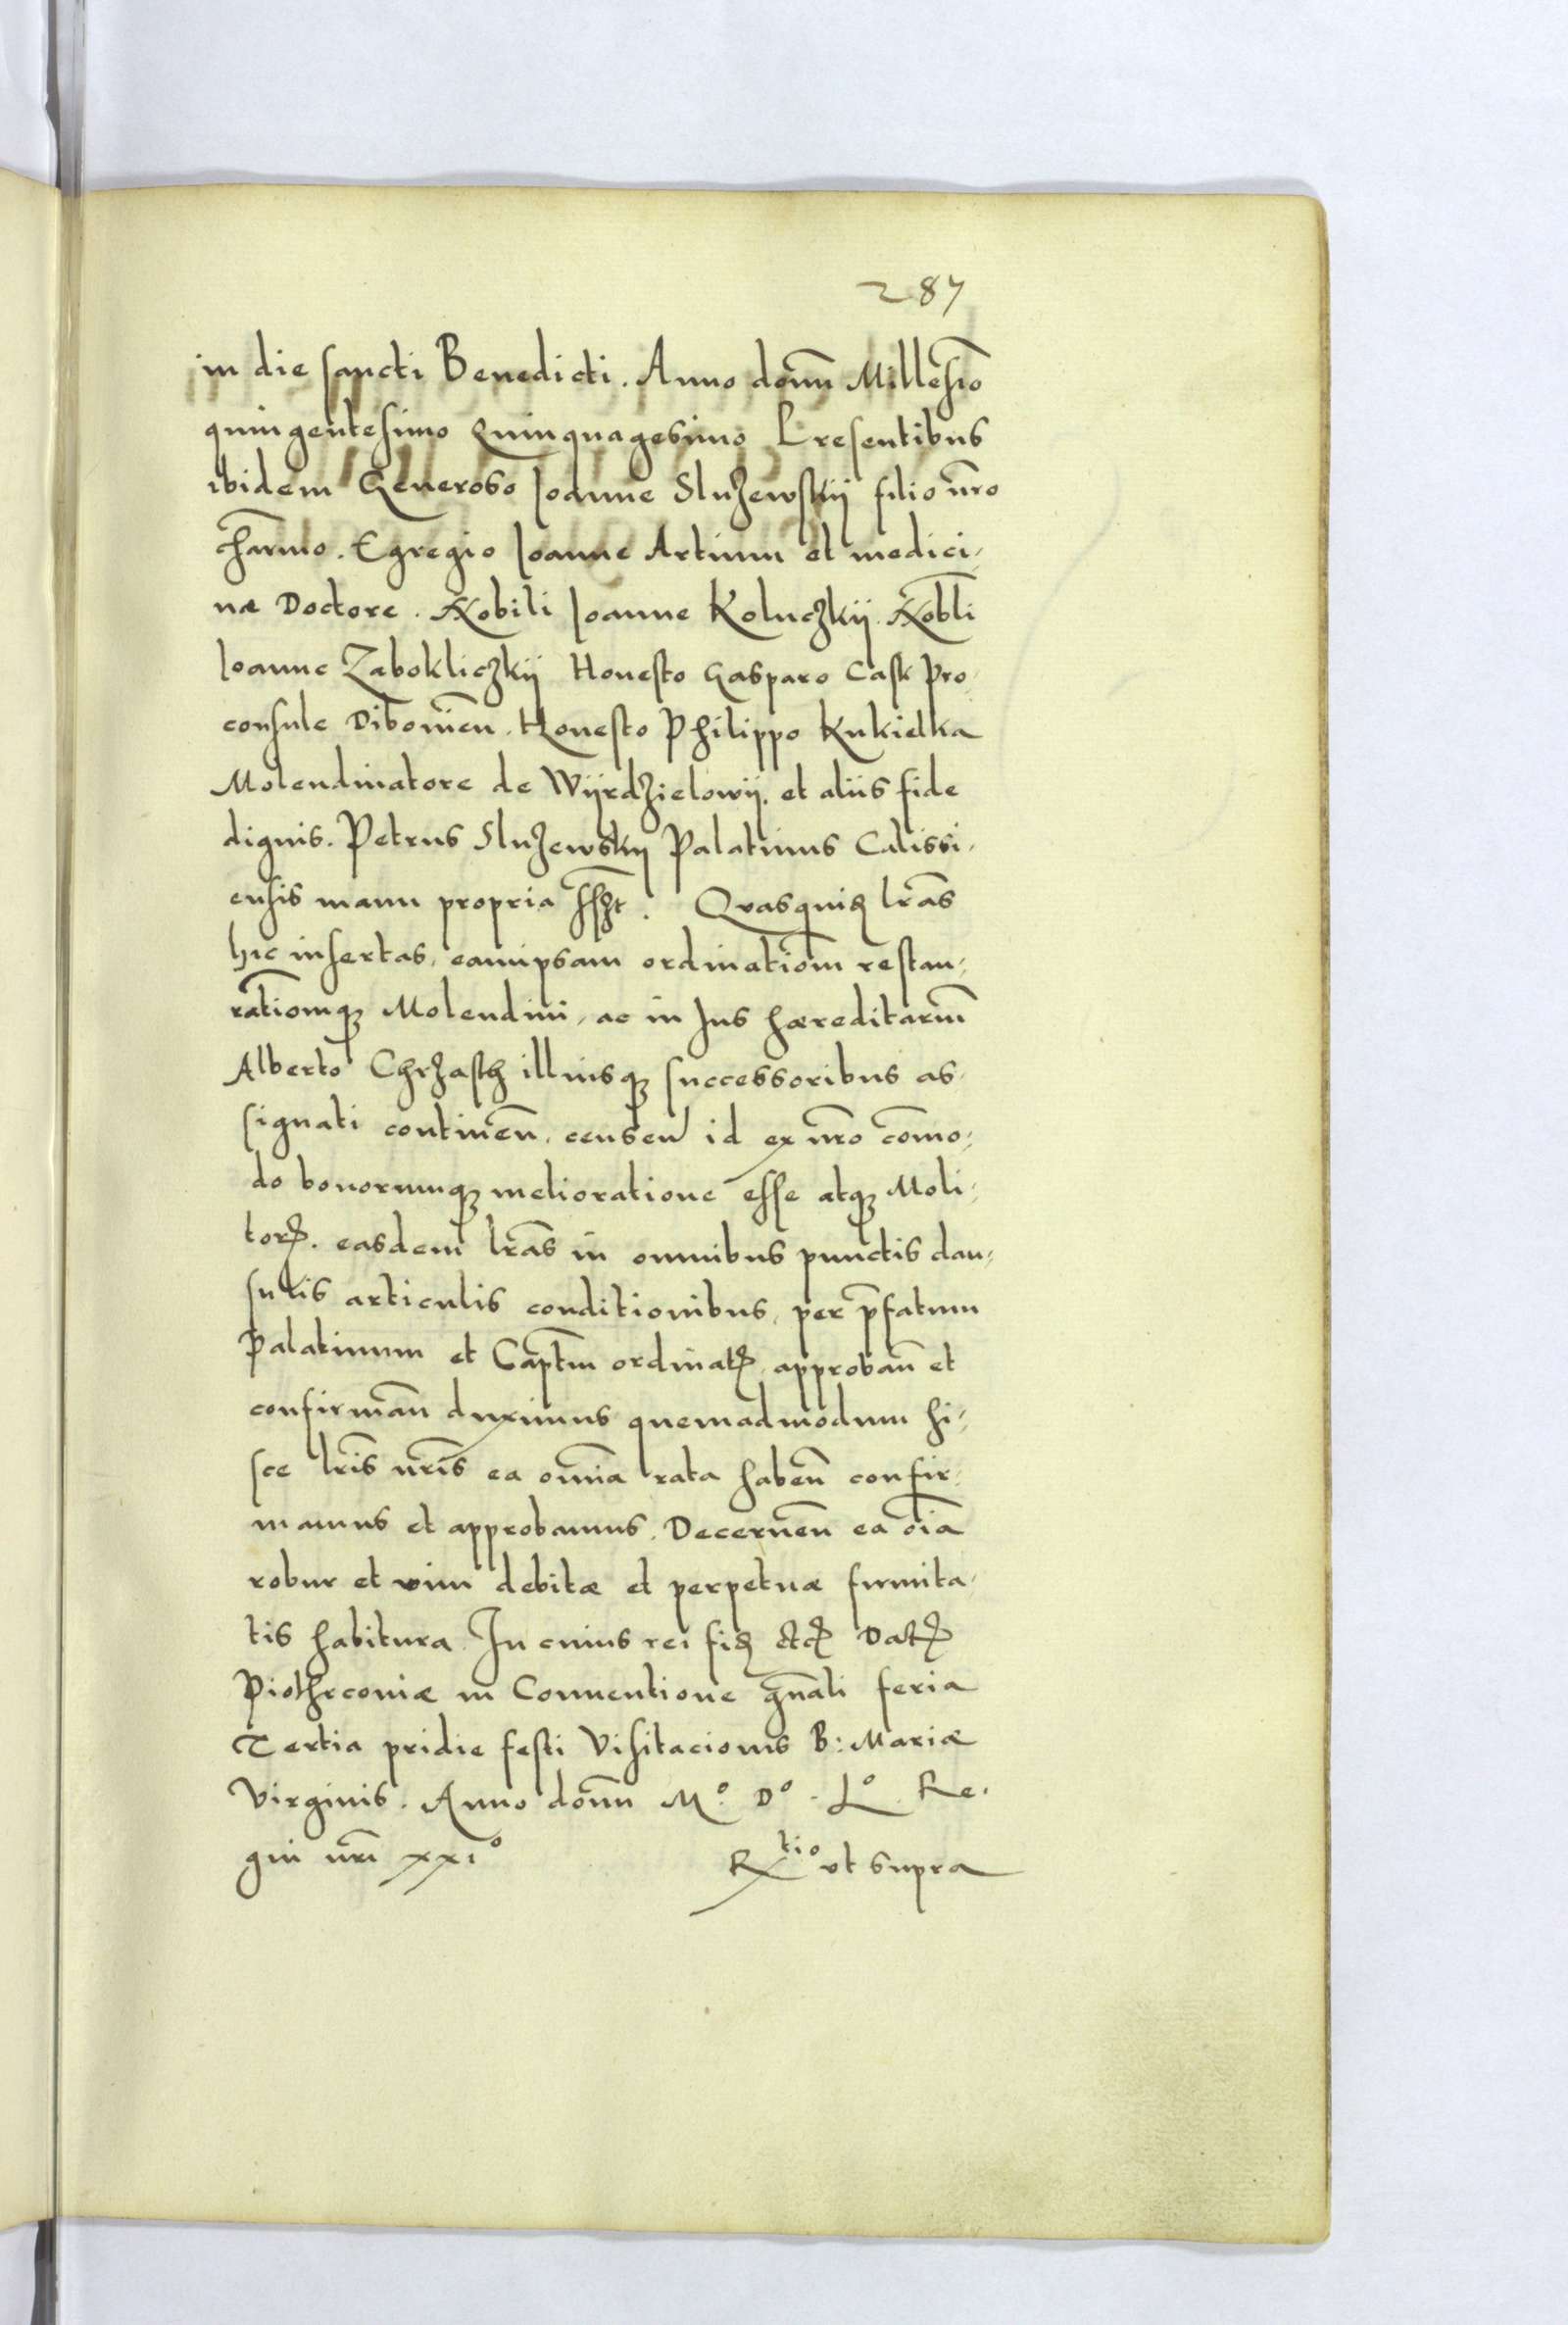 287
in die sancti Benedicti. Anno domi Millesio
quingentesimo Quinquagesimo Presentibus
ibidem Generoso Joanne Sluzewskij filio nro
charmo. Egregio Joanne Artium et medici-
næ Doctore. Nobili Joanne Koluczkij. Nobli
Joanne Zabokliczkij Honesto Gasparo Cask Pro
consule Dibovien. Honesto Philippo Kukielka
Molendinatore de Wijrdzielowij. et aliis fide
dignis. Petrus Sluzewskij Palatinus Calissi-
ensis manu propria sszt. Quasquid lras
hic insertas, eamipsam ordinationem restau-
rationemq Molendini, ac in Jus hæreditarium
Alberto Chrzasth illiusq successoribus as-
signati continen. censen id ex nro commo-
do bonorumq melioratione esse atq Moli-
tor. easdem lras in omnibus punctis clau-
sulis articulis conditionibus, per pfatum
Palatinum et Captm ordinat. approban et
confirman duximus quemadmodum hi-
sce lris nris ea omnia rata haben confir-
mamus et approbamus. Decernen ea oia
robur et vim debitæ et perpetuæ firmita-
tis habitura. In cuius rei fid etc Dat
Piothrconiæ in Conventione gnali feria
Tertia pridie festi Visitacionis B: Mariæ
Virginis. Anno domi Mº. Dº. Lº. Re-
gni nri xxiº
Rtio ut supra